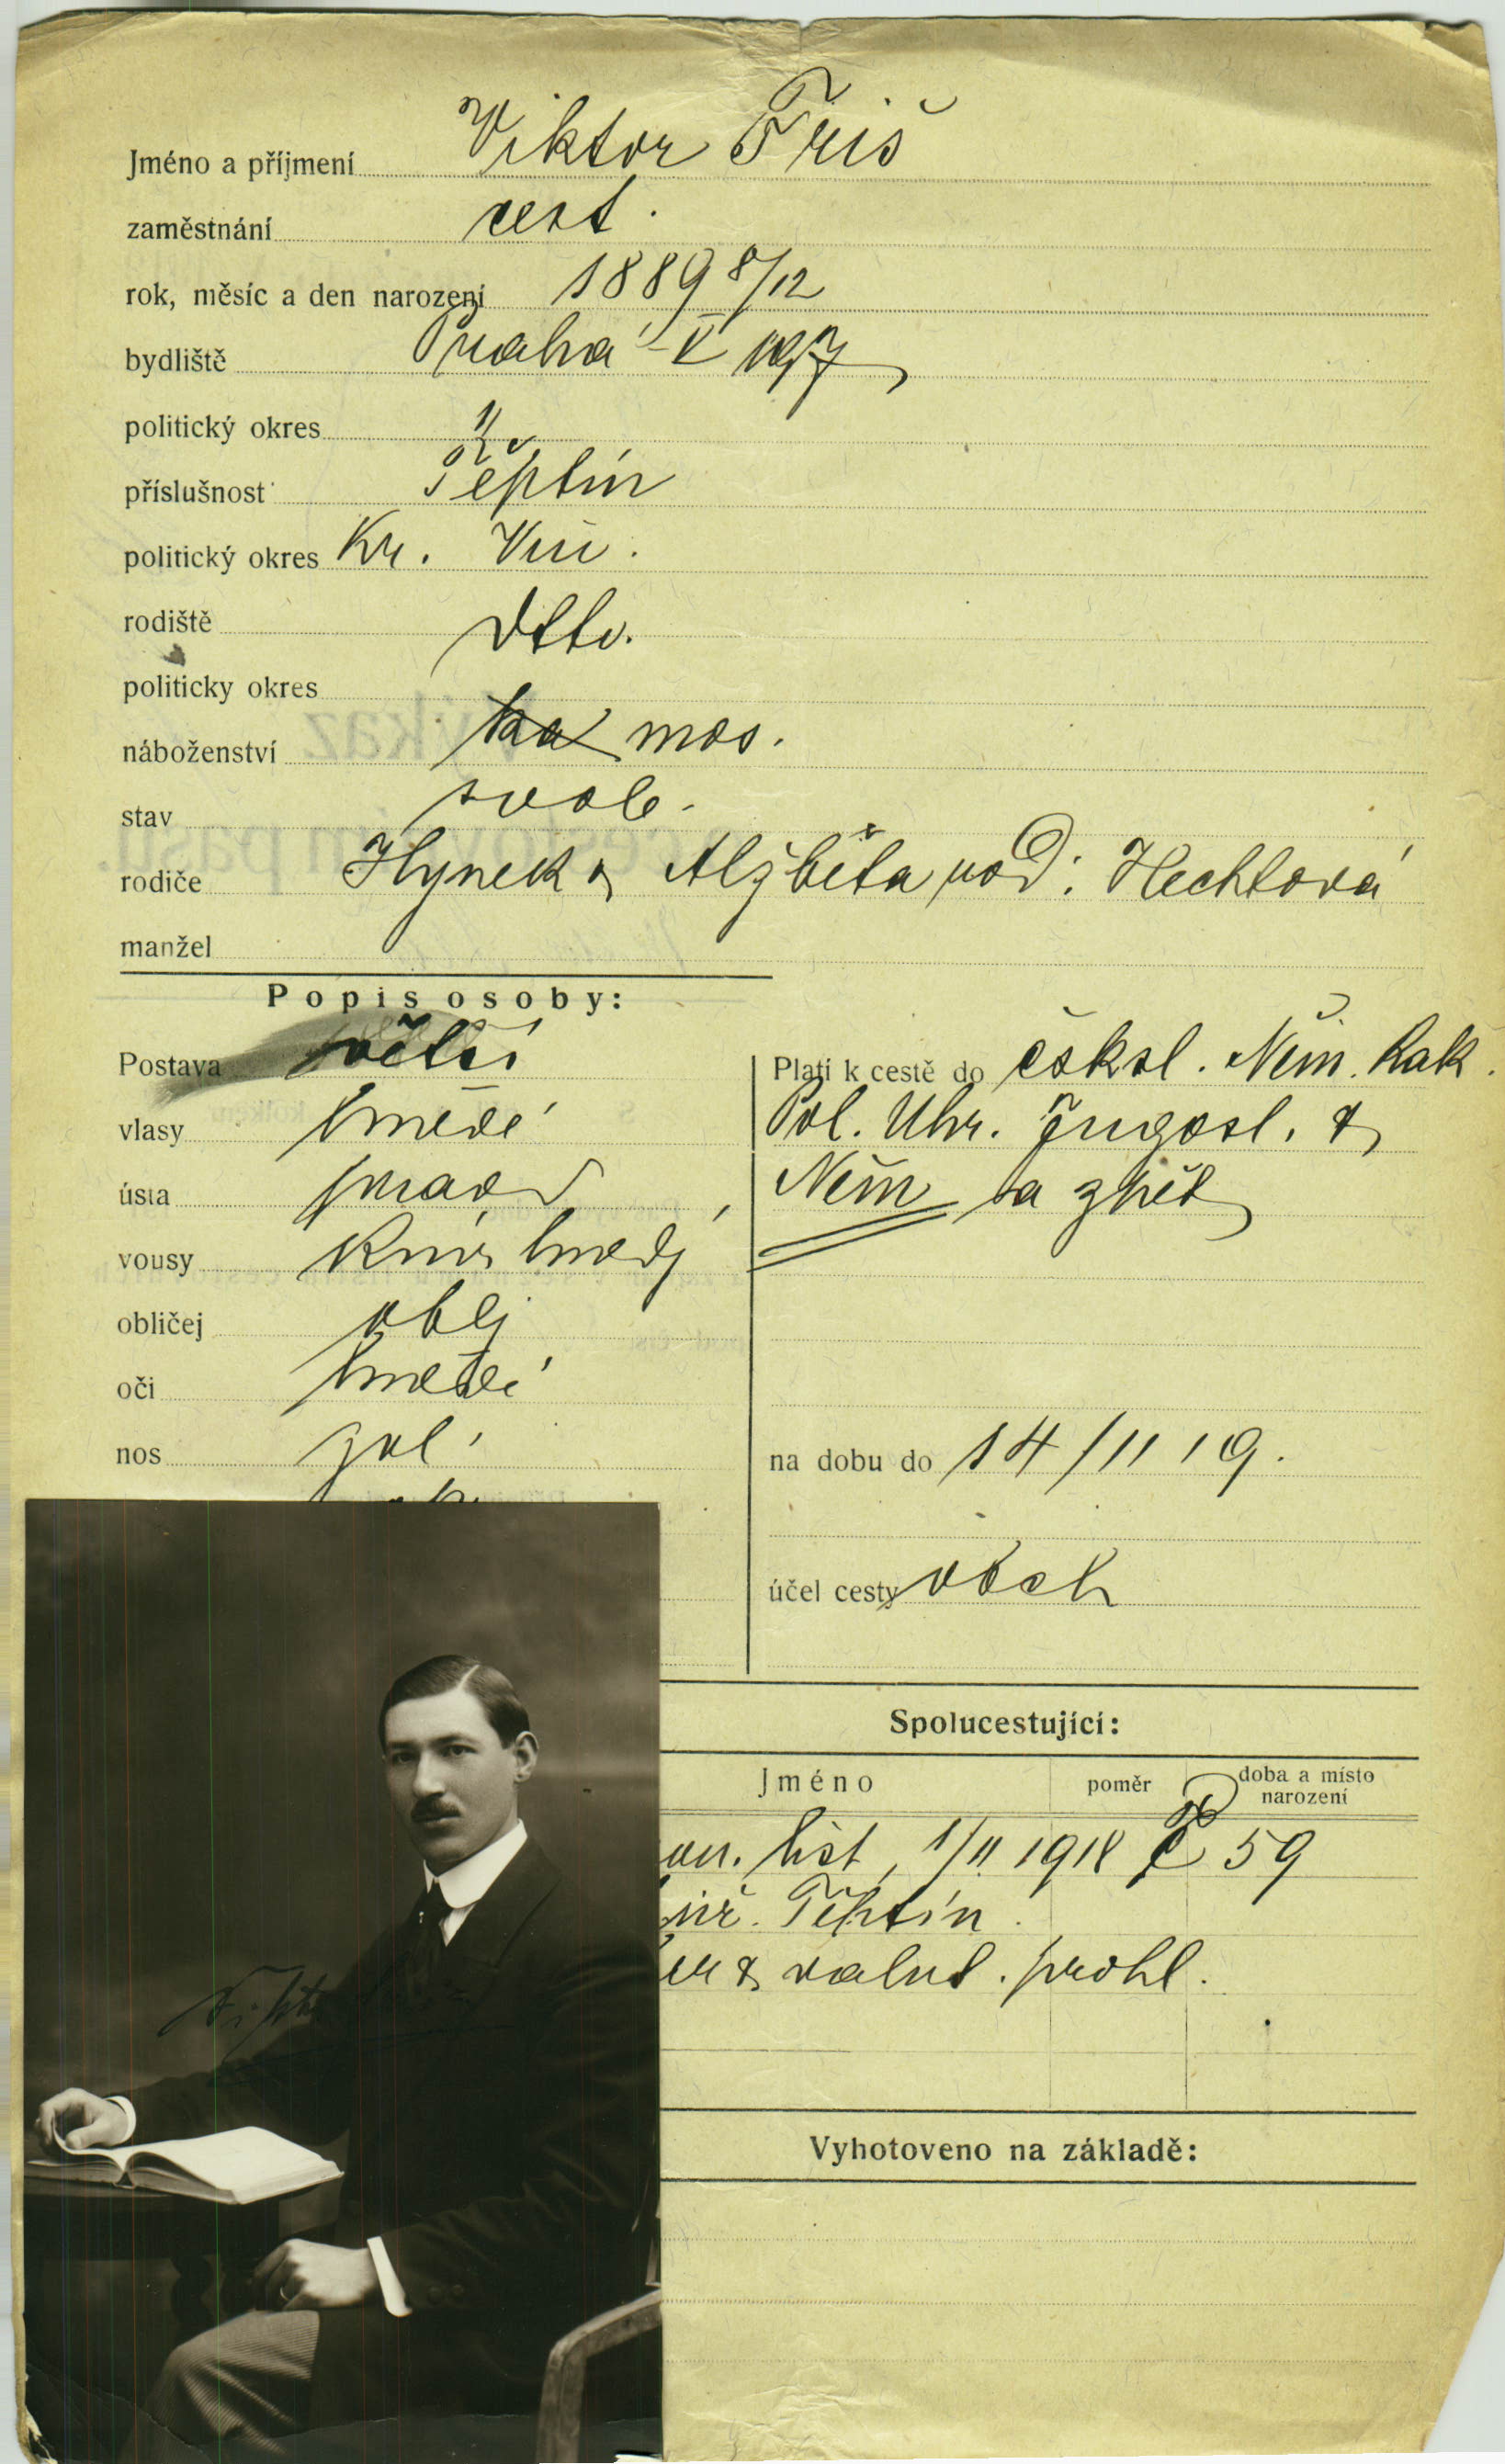 Jméno a příjmení Viktor Friš
zaměstnání cest.
rok, měsíc a den narození 1889 8/12
bydliště Praha V
politický okres
příslušnost Těptín
politický okres Kr. Vin.
rodiště Dtto.
politický okres
náboženství mos.
stav svob.
rodiče Hynek & Alžběta rod. Hechtová
manžel
Popis osoby:
Postava větší
vlasy hnědé
ústa prav
vousy knír hnědý
obličej obl
oči hnědé
nos
Platí k cestě do čsksl. Něm. Rak.
Pol. Uhr. Jugosl. &
Něm a zpět
na dobu do 14/11 19.
účel cesty obch
Spolucestující:
Jméno poměr doba a místo narození
list, 1/11 1918 č 59
Těptín.
& valut. prohl.
Vyhotoveno na základě: